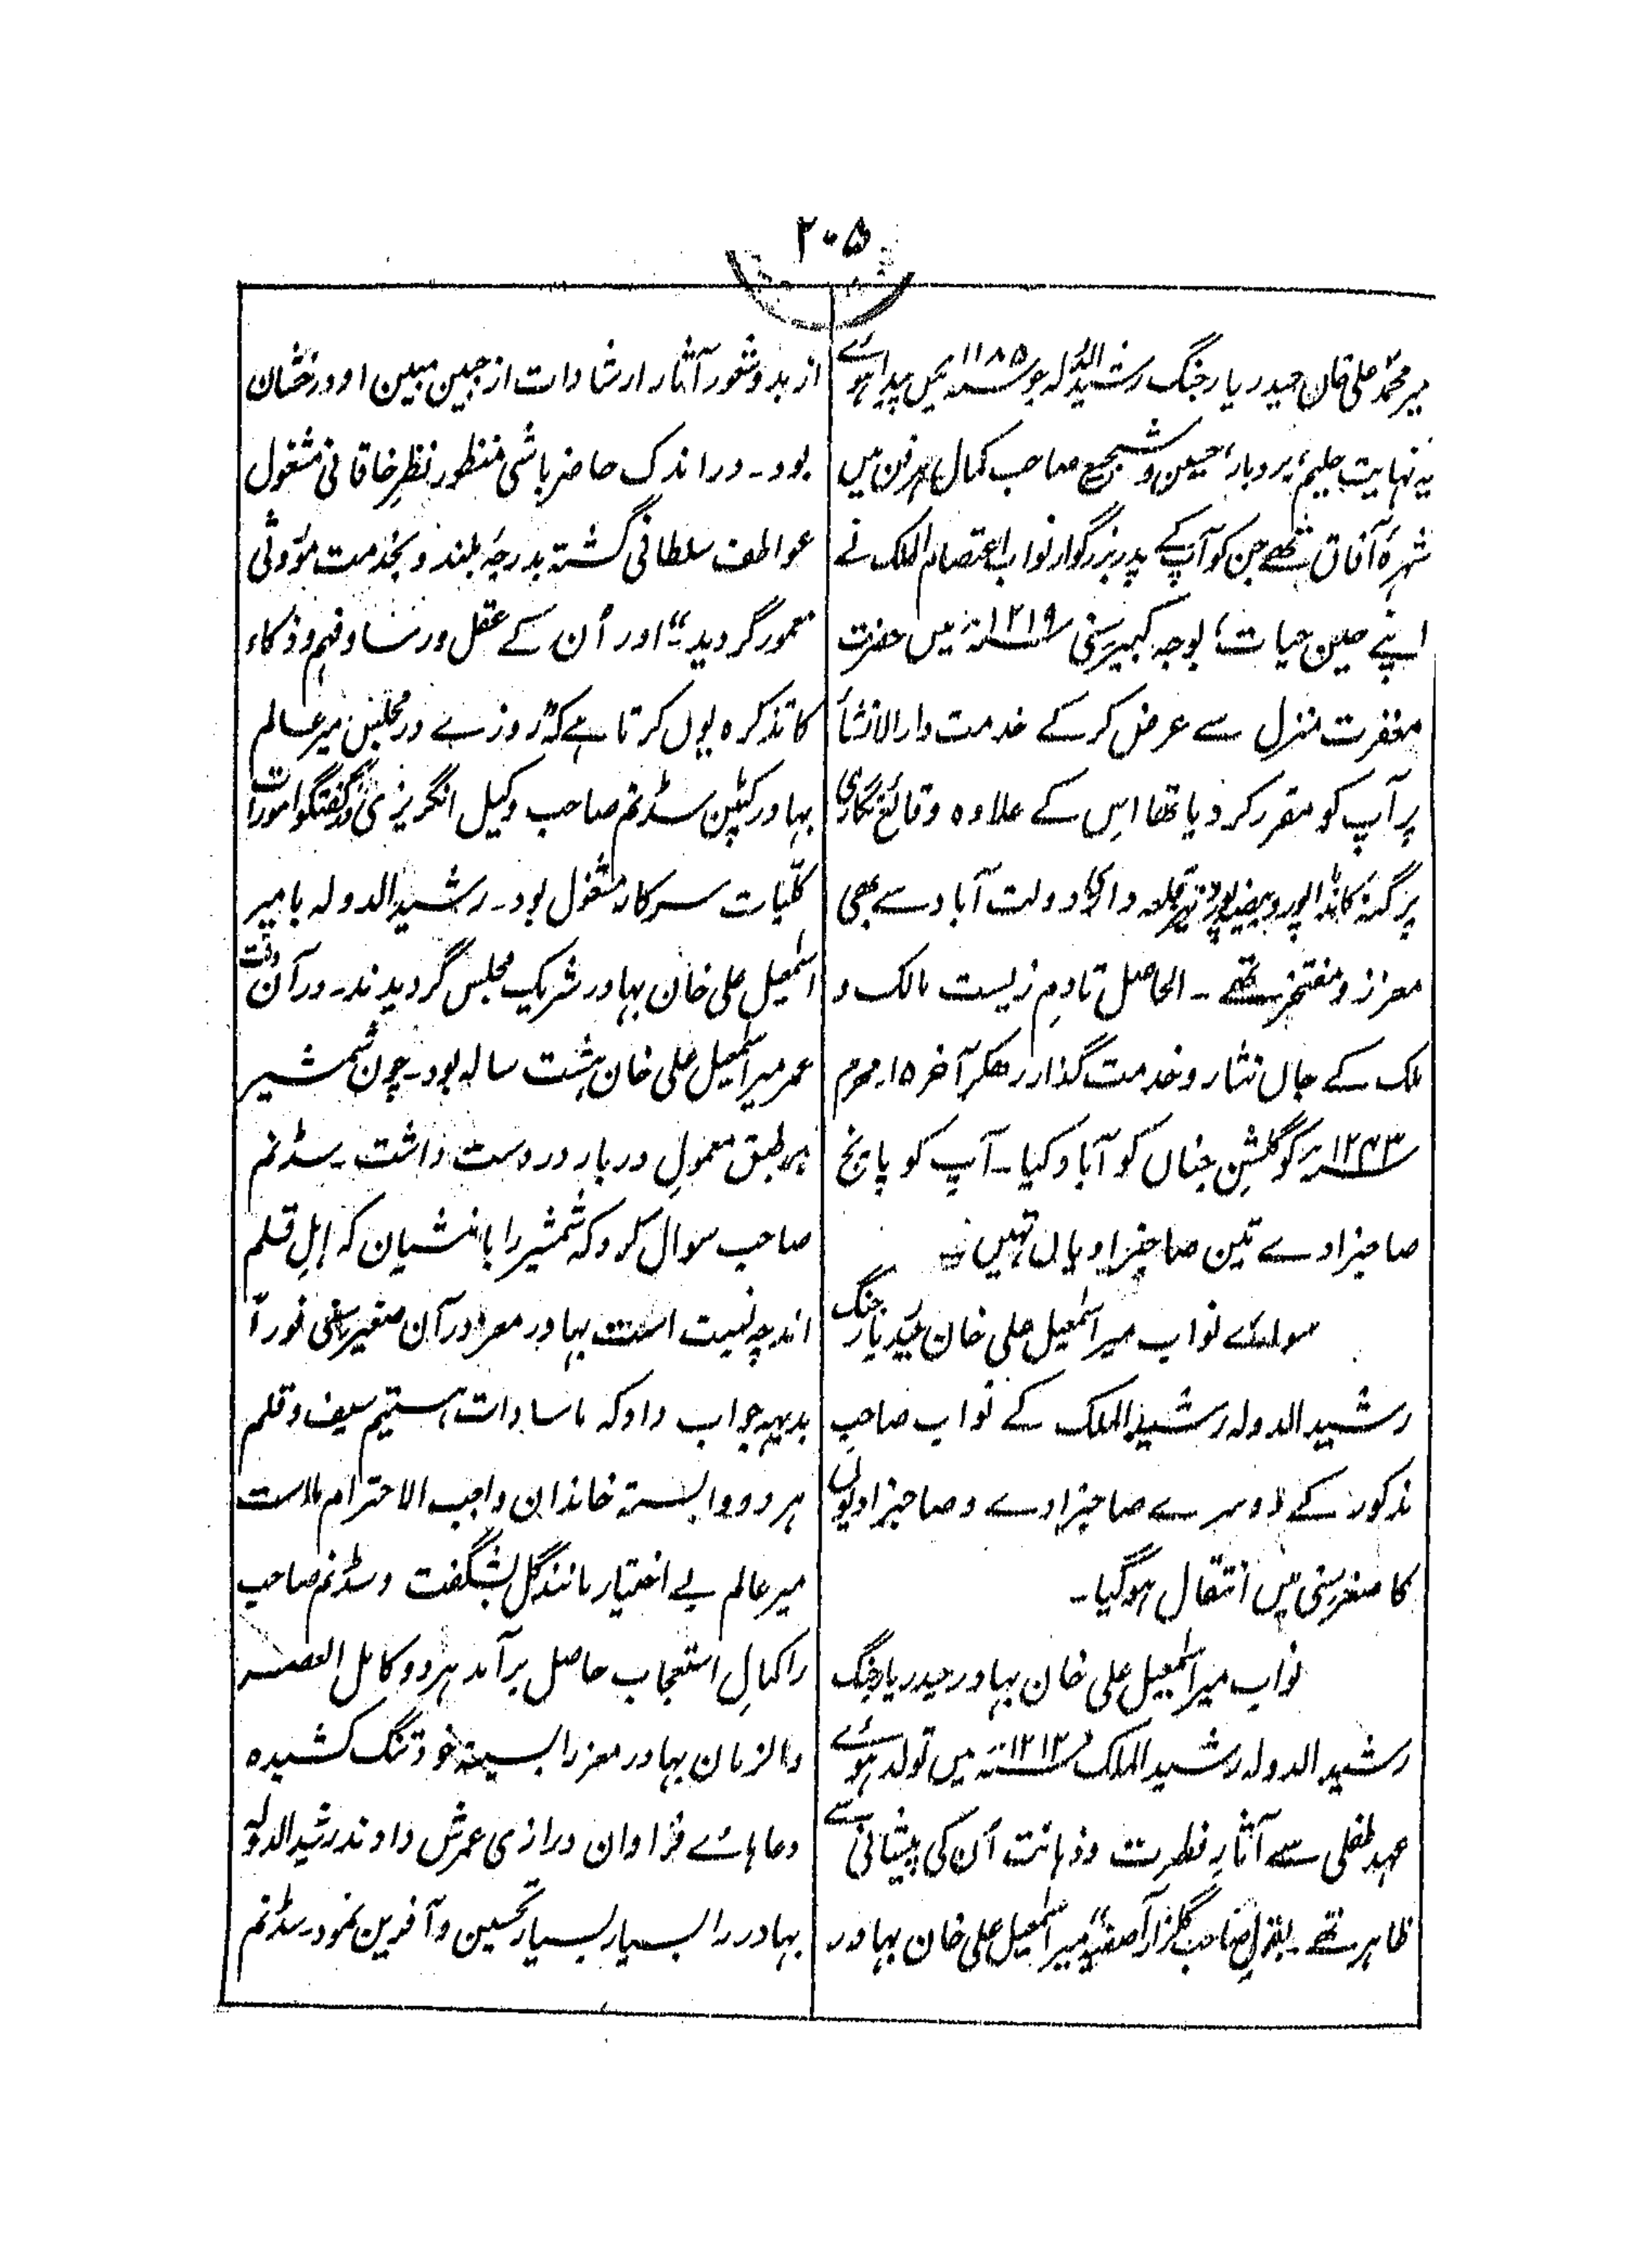 ۲۰۵
میر محمد علی خان حیدر یار جنگ رشید الدولہ جو ۱۱۸۵؁ میں پیدا ہوئے
یہ نہایت حلیم، بردبار، حسین و شجیع صاحب کمال ہر فن میں
شہرۂ آفاق تھے جن کو آپ کے پدر بزرگوار نواب اعتصام الملک نے
اپنے حین حیات، بوجہ کبیر سنی ۱۲۱۹؁ میں حضرت
مغفرت منزل سے عرض کر کے خدمت دار الانشأ
پر آپ کو مقرر کر دیا تھا اس کے علاوہ وقائع نگاری
پرگنہ دولت آباد سے بھی
معزز و مفتخر تھے ۔ الحاصل تادم زیست مالک و
ملک کے جاں نثار و خدمت گذار رھکر آخر ۱۵۔ محرم
۱۲۴۳؁ کو گلشنِ جناں کو آباد کیا ۔ آپ کو پانچ
صاحبزادے تین صاحبزادیاں تہیں
سوائے نواب میر اسمٰعیل علی خان حیدر یار جنگ
رشید الدولہ رشید الملک کے نواب صاحب
مذکور کے دوسرے صاحبزادے و صاحبزادیوں
کا صغر سنی میں انتقال ہو گیا ۔
نواب میر اسمٰعیل علی خان بہادر حیدر یار جنگ
رشید الدولہ رشید الملک ۱۲۱۲؁ میں تولد ہوئے
عہد طفلی سے آثارِ فطرت و ذہانت اُن کی پیشانی سے
ظاہر تھے ۔ بقول صاحب گلزار آصفیہ "میر اسمٰعیل علی خان بہادر
از بدو شعور آثار ارشادات از جبین مبین او درخشان
بود ۔ در اندک حاضر باشی منظور نظرِ خاقانی مشغول
عواطف سلطانی گشتہ بدرجۂ بلند و بخدمت موروثی
معمور گردید" اور اُن کے عقل و رسا و فہم و ذکاء
کا تذکرہ یوں کرتا ہے کہ "روزے در مجلس میر عالم
بہادر کپٹن سڈنم صاحب وکیل انگریزی در گفتگو امورات
کلّیات سرکار مشغول بود ۔ رشید الدولہ با میر
اسمٰعیل علی خان بہادر شریک مجلس گردیدند ۔ در آن وقت
عمر میر اسمٰعیل علی خان ہشت سالہ بود ۔ چون شمشیر
بر طبق معمولِ دربار در دست داشت ۔ سڈنم
صاحب سوال کرد کہ شمشیر را با منشیان کہ اہلِ قلم
اند چہ نسبت است بہادر معز در آن صغیر سنی فوراً
بدیہہ جواب داد کہ ما سادات ہستیم سیف و قلم
ہر دو وابستہ خاندان واجب الاحترام ماست
میر عالم بے اختیار مانند گل بشگفت و سڈنم صاحب
را کمالِ استعجاب حاصل بر آمد ہر دو کامل العصر
والزمان بہادر معز را بسینۂ خود تنگ کشیدہ
دعاہائے فراوان درازی عمرش دادند رشید الدولہ
بہادر را بسیار بسیار تحسین و آفرین نمود ۔ سڈنم